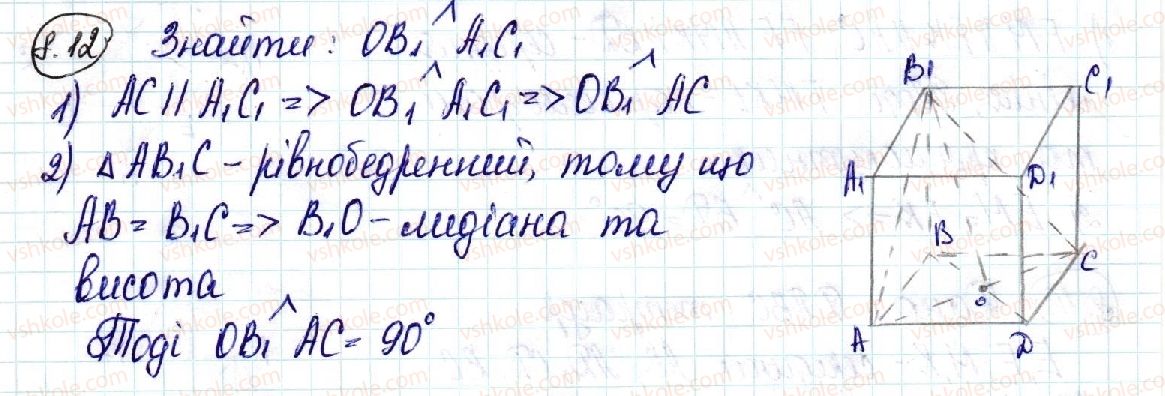 8.12 Знайти: OB₁^A₁C₁
1) AC || A₁C₁ => OB₁^A₁C₁ => OB₁^AC
2) △AB₁C - рівнобедренний, тому що
AB = B₁C => B₁O - медіана та
висота
Тоді OB₁^AC = 90°
B₁ C₁
A₁ D₁
B C
O
A D